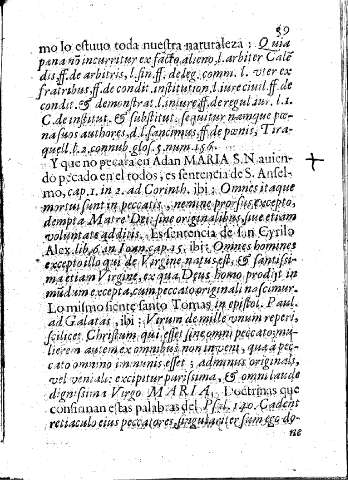 89
mo lo estuuo toda nuestra naturaleza: Quia
pœna nõ incurritur ex facto alieno, l. arbiter Calẽ
dis. ff. de arbitris, l. fin. ff. de leg. comm. l. vter ex
fratribus, ff. de condit. institution. l. iure civil. ff. de
condit. & demonstrat. l. in iure ff. de regul iur. l. 1.
C. de institut. & substitut. sequitur namque pœ-
na suos authores, d. l. sancimus, ff. de pœnis, Tira-
quell. l. 2. connub. glos. 5. num. 156.
Y que no pecara en Adan MARIA S. N. auien-
do pecado en el todos, es sentencia de S. Ansel-
mo, cap. 1. in 2. ad Corinth. ibi: Omnes itaque
mortui sunt in peccatis, nemine prorsus excepto,
dempta Matre Dei: sine originalibus, siue etiam
voluntate additis. Es sentencia de san Cyrilo
Alex. lib. 6. in Ioan. cap. 15. ibi: Omnes homines
excepto illo qui de Virgine natus est, & santissi-
ma etiam Virgine, ex qua Deus homo prodijt in
mũdum excepta, cum peccato originali nascimur.
Lo mismo siente santo Tomas in epistol. Paul.
ad Galatas, ibi: Virum de mille vnum reperi,
scilicet Christum qui esset sine omni peccato: mu-
lierem autem ex omnibus non inveni, quæ à pec-
cato omnino immunis esset; ad minus originali,
vel veniali: excipitur purissima, & omni laude
dignissima Virgo MARIA. Doctrinas que
confirman estas palabras del Psal. 140. Cadent
retiaculo eius peccatores, singulariter sum ego do-
ne